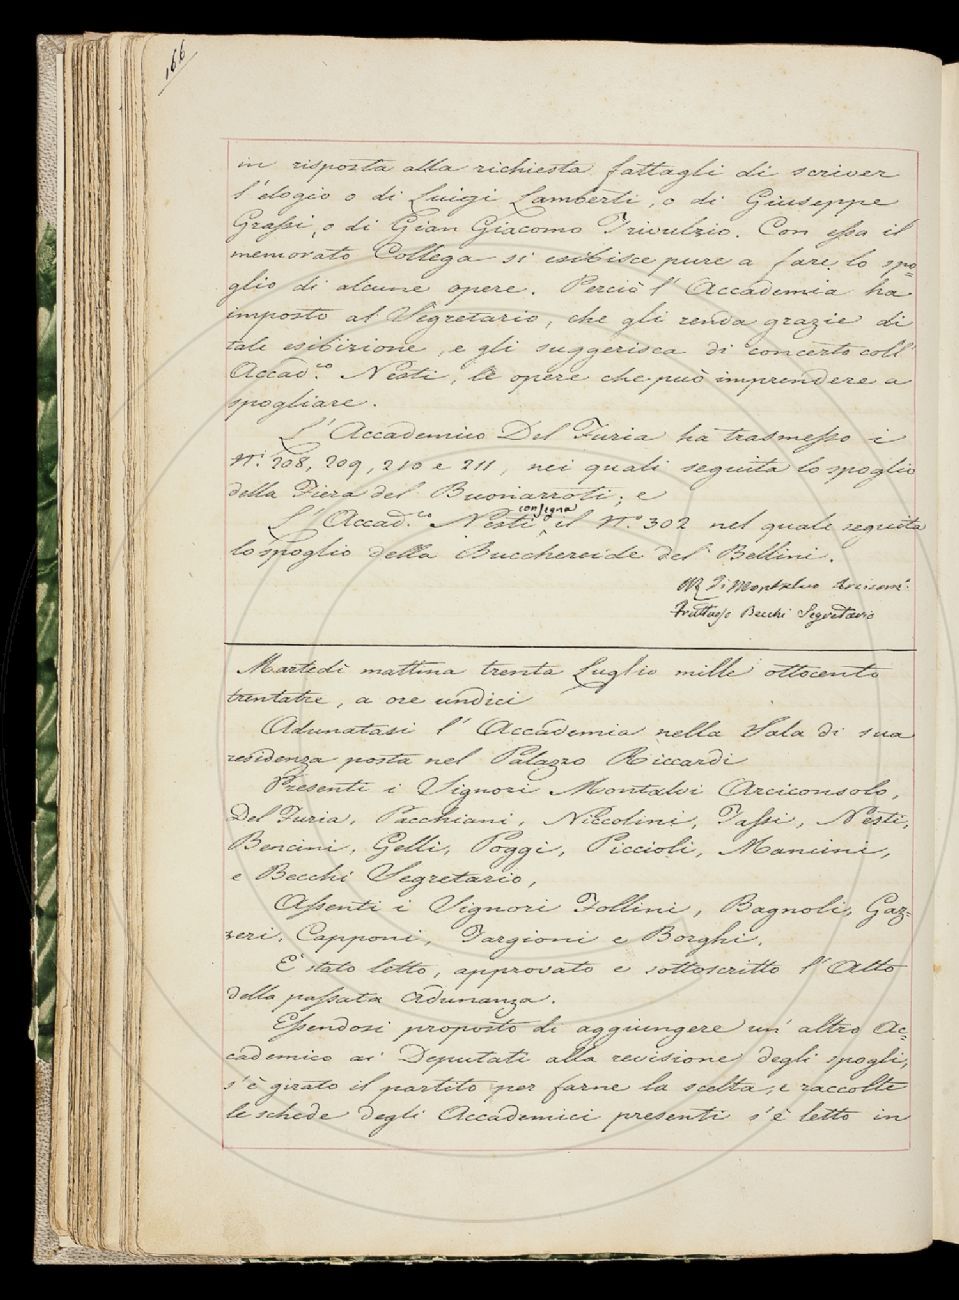 166
in risposta alla richiesta fattagli di scriver
l'elogio o di Luigi Lamberti, o di Giuseppe
Grassi, o di Gian Giacomo Trivulzio. Con essa il
memorato Collega si esibisce pure a fare lo spo=
glio di alcune opere. Perciò l'Accademia ha
imposto al Segretario, che gli renda grazie di
tale esibizione, e gli suggerisca di concerto coll'
Accad.co Nesti, le opere che può imprendere a
spogliare.
L'Accademico Del Furia ha trasmesso i
N.i 208, 209, 210 e 211, nei quali seguita lo spoglio
della Fiera del Buonarroti; e
L'Accad.co Nesti consegna il N.o 302 nel quale seguita
lo spoglio della Bucchereide del Bellini.
Di Montalvo Arcicons.o
Fruttuoso Becchi Segretario
Martedì mattina trenta Luglio mille ottocento
trentatre, a ore undici
Adunatasi l'Accademia nella Sala di sua
residenza posta nel Palazzo Riccardi
Presenti i Signori Montalvi Arciconsolo,
Del Furia, Pacchiani, Niccolini, Tassi, Nesti,
Bencini, Gelli, Poggi, Piccioli, Mancini,
e Becchi Segretario,
Assenti i Signori Follini, Bagnoli, Gaz=
zeri, Capponi, Targioni e Borghi.
E' stato letto, approvato e sottoscritto l'Atto
della passata Adunanza.
Essendosi proposto di aggiungere un'altro Ac=
cademico ai Deputati alla revisione degli spogli,
s'è girato il partito per farne la scelta, e raccolte
le schede degli Accademici presenti s'è letto in